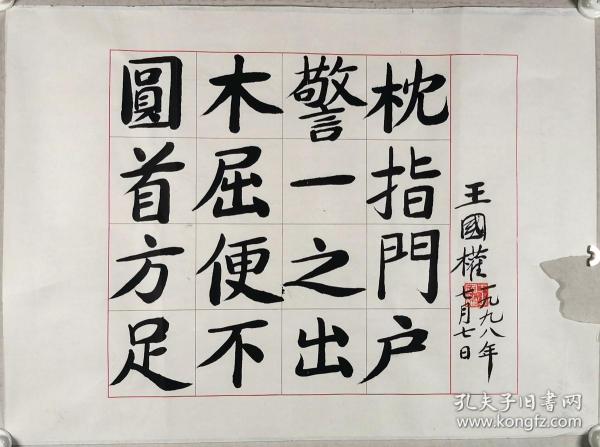 圓木警枕
首屈一指
方便之門
足不出户
王國權
一九九八年
七月七日
孔夫子旧书网
www.kongfz.com